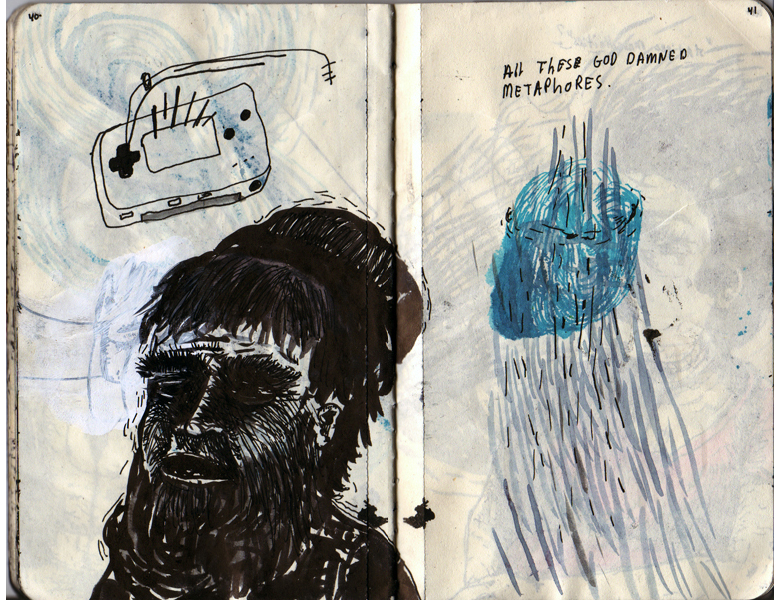 40
41
All ThESE GOD DAMNED
METAPhORES.